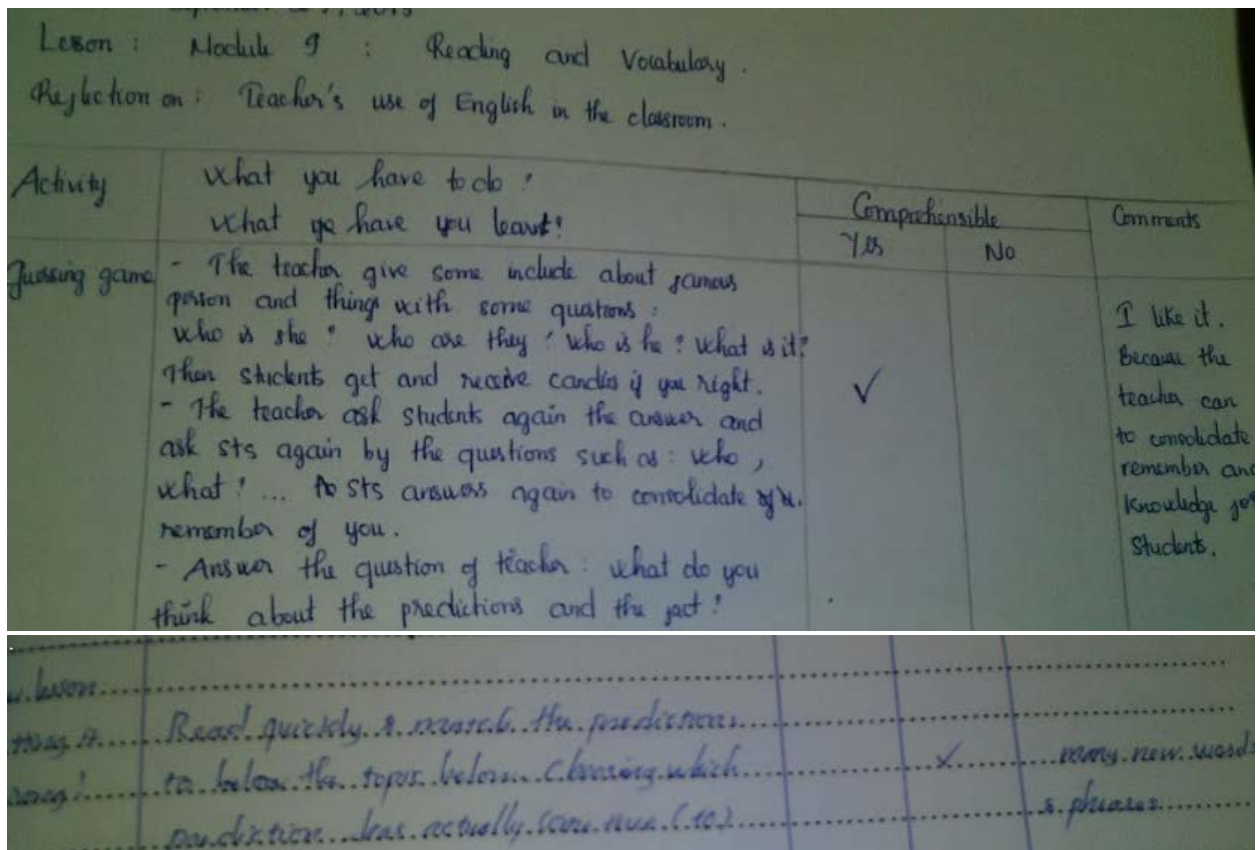 Lesson : Module 9 : Reading and Vocabulary.
Reflection on : Teacher's use of English in the classroom.
Activity
What you have to do?
What ge have you leart?
Comprehensible
Yes
No
Comments
Guessing game
- The teacher give some include about famous
person and things with some questions :
who is she? who are they? who is he? what is it?
Then students get and receive candies if you right.
- The teacher ask students again the answer and
ask sts again by the questions such as : who,
what? ... sts answers again to consolidate
remember of you.
- Answer the question of teacher : what do you
think about the predictions and the fact?
✓
I like it.
Because the
teacher can
to consolidate
remember and
knowledge for
Student.
lesson
Read quickly & match the predictions
to below the topic below. Choosing which
prediction has actually come true (to)
✓
many new words
& phrases